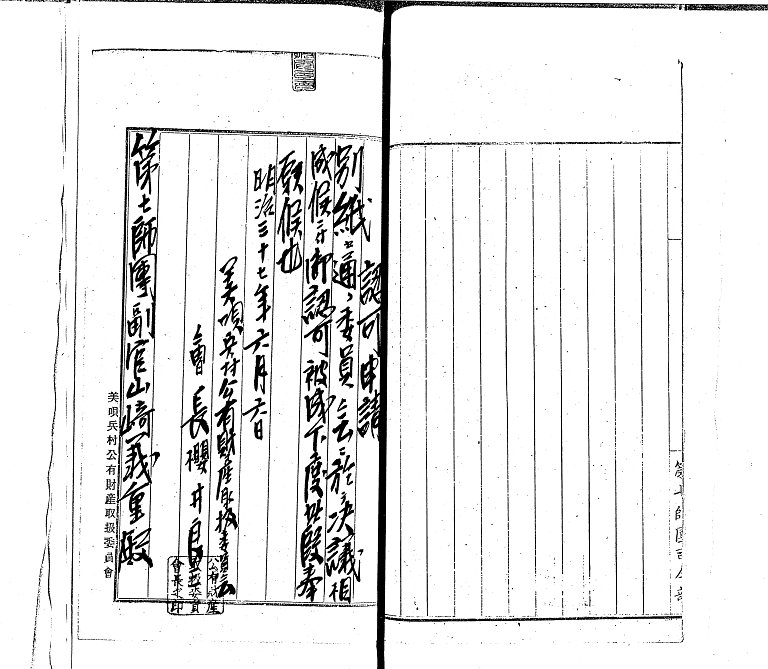 認可申請
別紙之通リ委員会ニ於テ決議相
成候ニ付御認可被成下度此段奉
願候也
明治三十七年六月六日
美唄兵村公有財産取扱委員会
會長櫻井良
第七師團副官山崎義重殿
美唄兵村公有財産取扱委員會
公有財産
取扱委員
會長之印